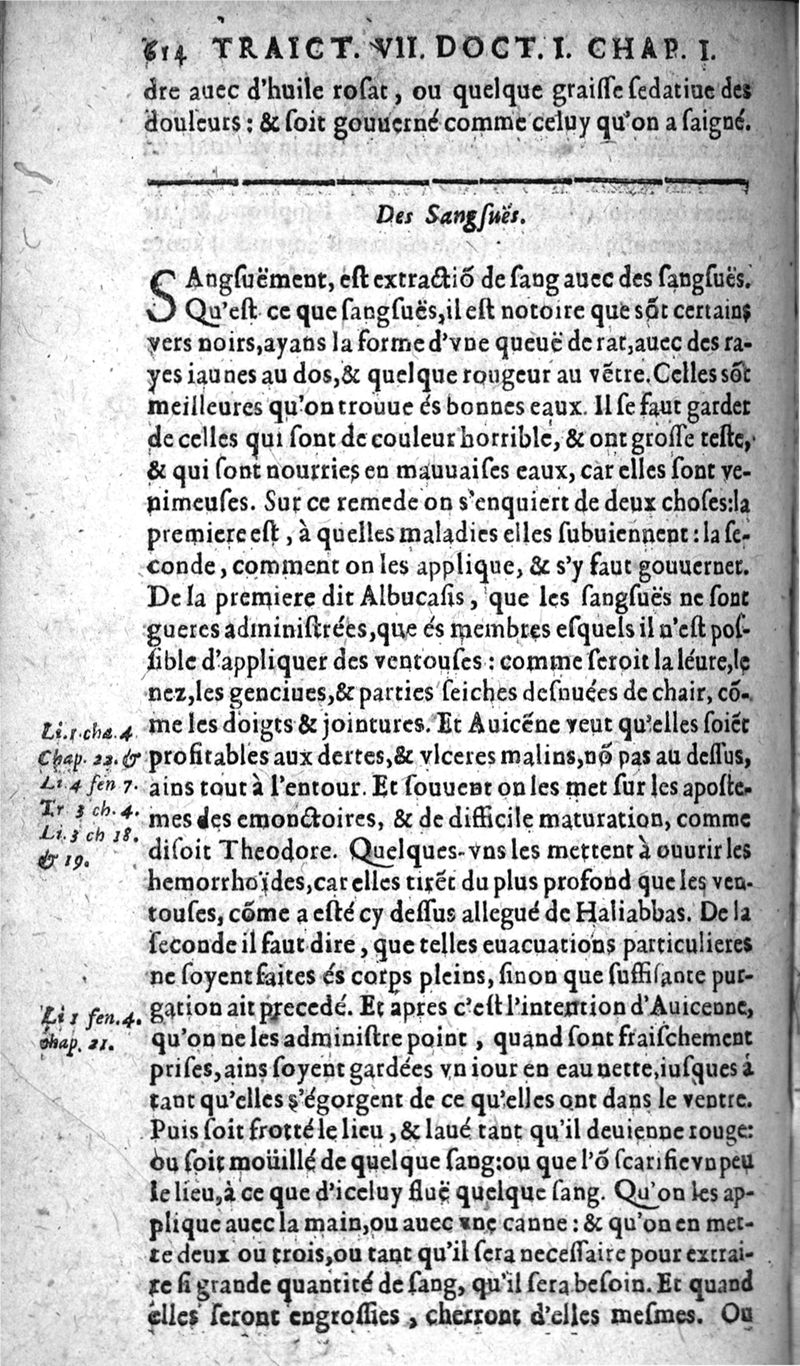 614 TRAICT. VII. DOCT. I. CHAP. I.
dre auec d'huile rosat, ou quelque graisse sedatiue des
douleurs : & soit gouuerné comme celuy qu'on a saigné.
Des Sangsuës.
SAngsuëment, est extractiõ de sang auec des sangsuës.
Qu'est ce que sangsuës, il est notoire que sõt certains
vers noirs, ayans la forme d'vne queuë de rat, auec des ra-
yes iaunes au dos, & quelque rougeur au vẽtre. Celles sõt
meilleures qu'on trouue és bonnes eaux. Il se faut garder
de celles qui sont de couleur horrible, & ont grosse teste,
& qui sont nourries en mauuaises eaux, car elles sont ve-
nimeuses. Sur ce remede on s'enquiert de deux choses: la
premiere est, à quelles maladies elles subuiennent : la se-
conde, comment on les applique, & s'y faut gouuerner.
De la premiere dit Albucasis, que les sangsuës ne sont
gueres administrées, que és membres esquels il n'est pos-
sible d'appliquer des ventouses : comme seroit la léure, le
nez, les genciues, & parties seiches desnuées de chair, cõ-
me les doigts & jointures. Et Auicẽne veut qu'elles soiẽt
profitables aux dertes, & vlceres malins, nõ pas au dessus,
ains tout à l'entour. Et souuent on les met sur les aposte-
mes des emonctoires, & de difficile maturation, comme
disoit Theodore. Quelques-vns les mettent à ouurir les
hemorrhoïdes, car elles tirẽt du plus profond que les ven-
touses, cõme a esté cy dessus allegué de Haliabbas. De la
seconde il faut dire, que telles euacuations particulieres
ne soyent faites és corps pleins, sinon que suffisante pur-
gation ait precedé. Et apres c'est l'intention d'Auicenne,
qu'on ne les administre point, quand sont fraischement
prises, ains soyent gardées vn iour en eau nette, iusques à
tant qu'elles s'égorgent de ce qu'elles ont dans le ventre.
Puis soit frotté le lieu, & laué tant qu'il deuienne rouge:
ou soit moüillé de quelque sang: ou que l'õ scarifie vn peu
le lieu, à ce que d'iceluy fluë quelque sang. Qu'on les ap-
plique auec la main, ou auec vne canne : & qu'on en met-
te deux ou trois, ou tant qu'il sera necessaire pour extrai-
re si grande quantité de sang, qu'il sera besoin. Et quand
elles seront engrossies, cherront d'elles mesmes. Ou
Li. 1. cha. 4.
Chap. 22. &
Li 4 fen 7.
Tr 3 ch. 4.
Li. 3 ch 18.
& 19.
Li 1 fen. 4.
chap. 21.